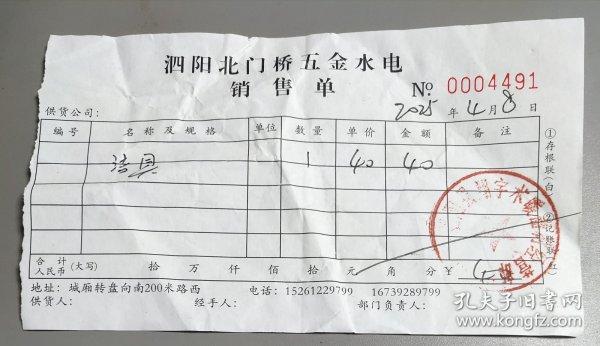 泗阳北门桥五金水电
销售单 № 0004491
供货公司: 2025 年 4 月 8 日
编号 名称及规格 单位 数量 单价 金额 备注
洁具 1 40 40
合计人民币(大写) 拾 万 仟 佰 拾 元 角 分 ¥
地址: 城厢转盘向南200米路西 电话: 15261229799 16739289799
供货人: 经手人: 部门负责人:
①存根联(白) ②记账联
孔夫子旧书网
www.kongfz.com